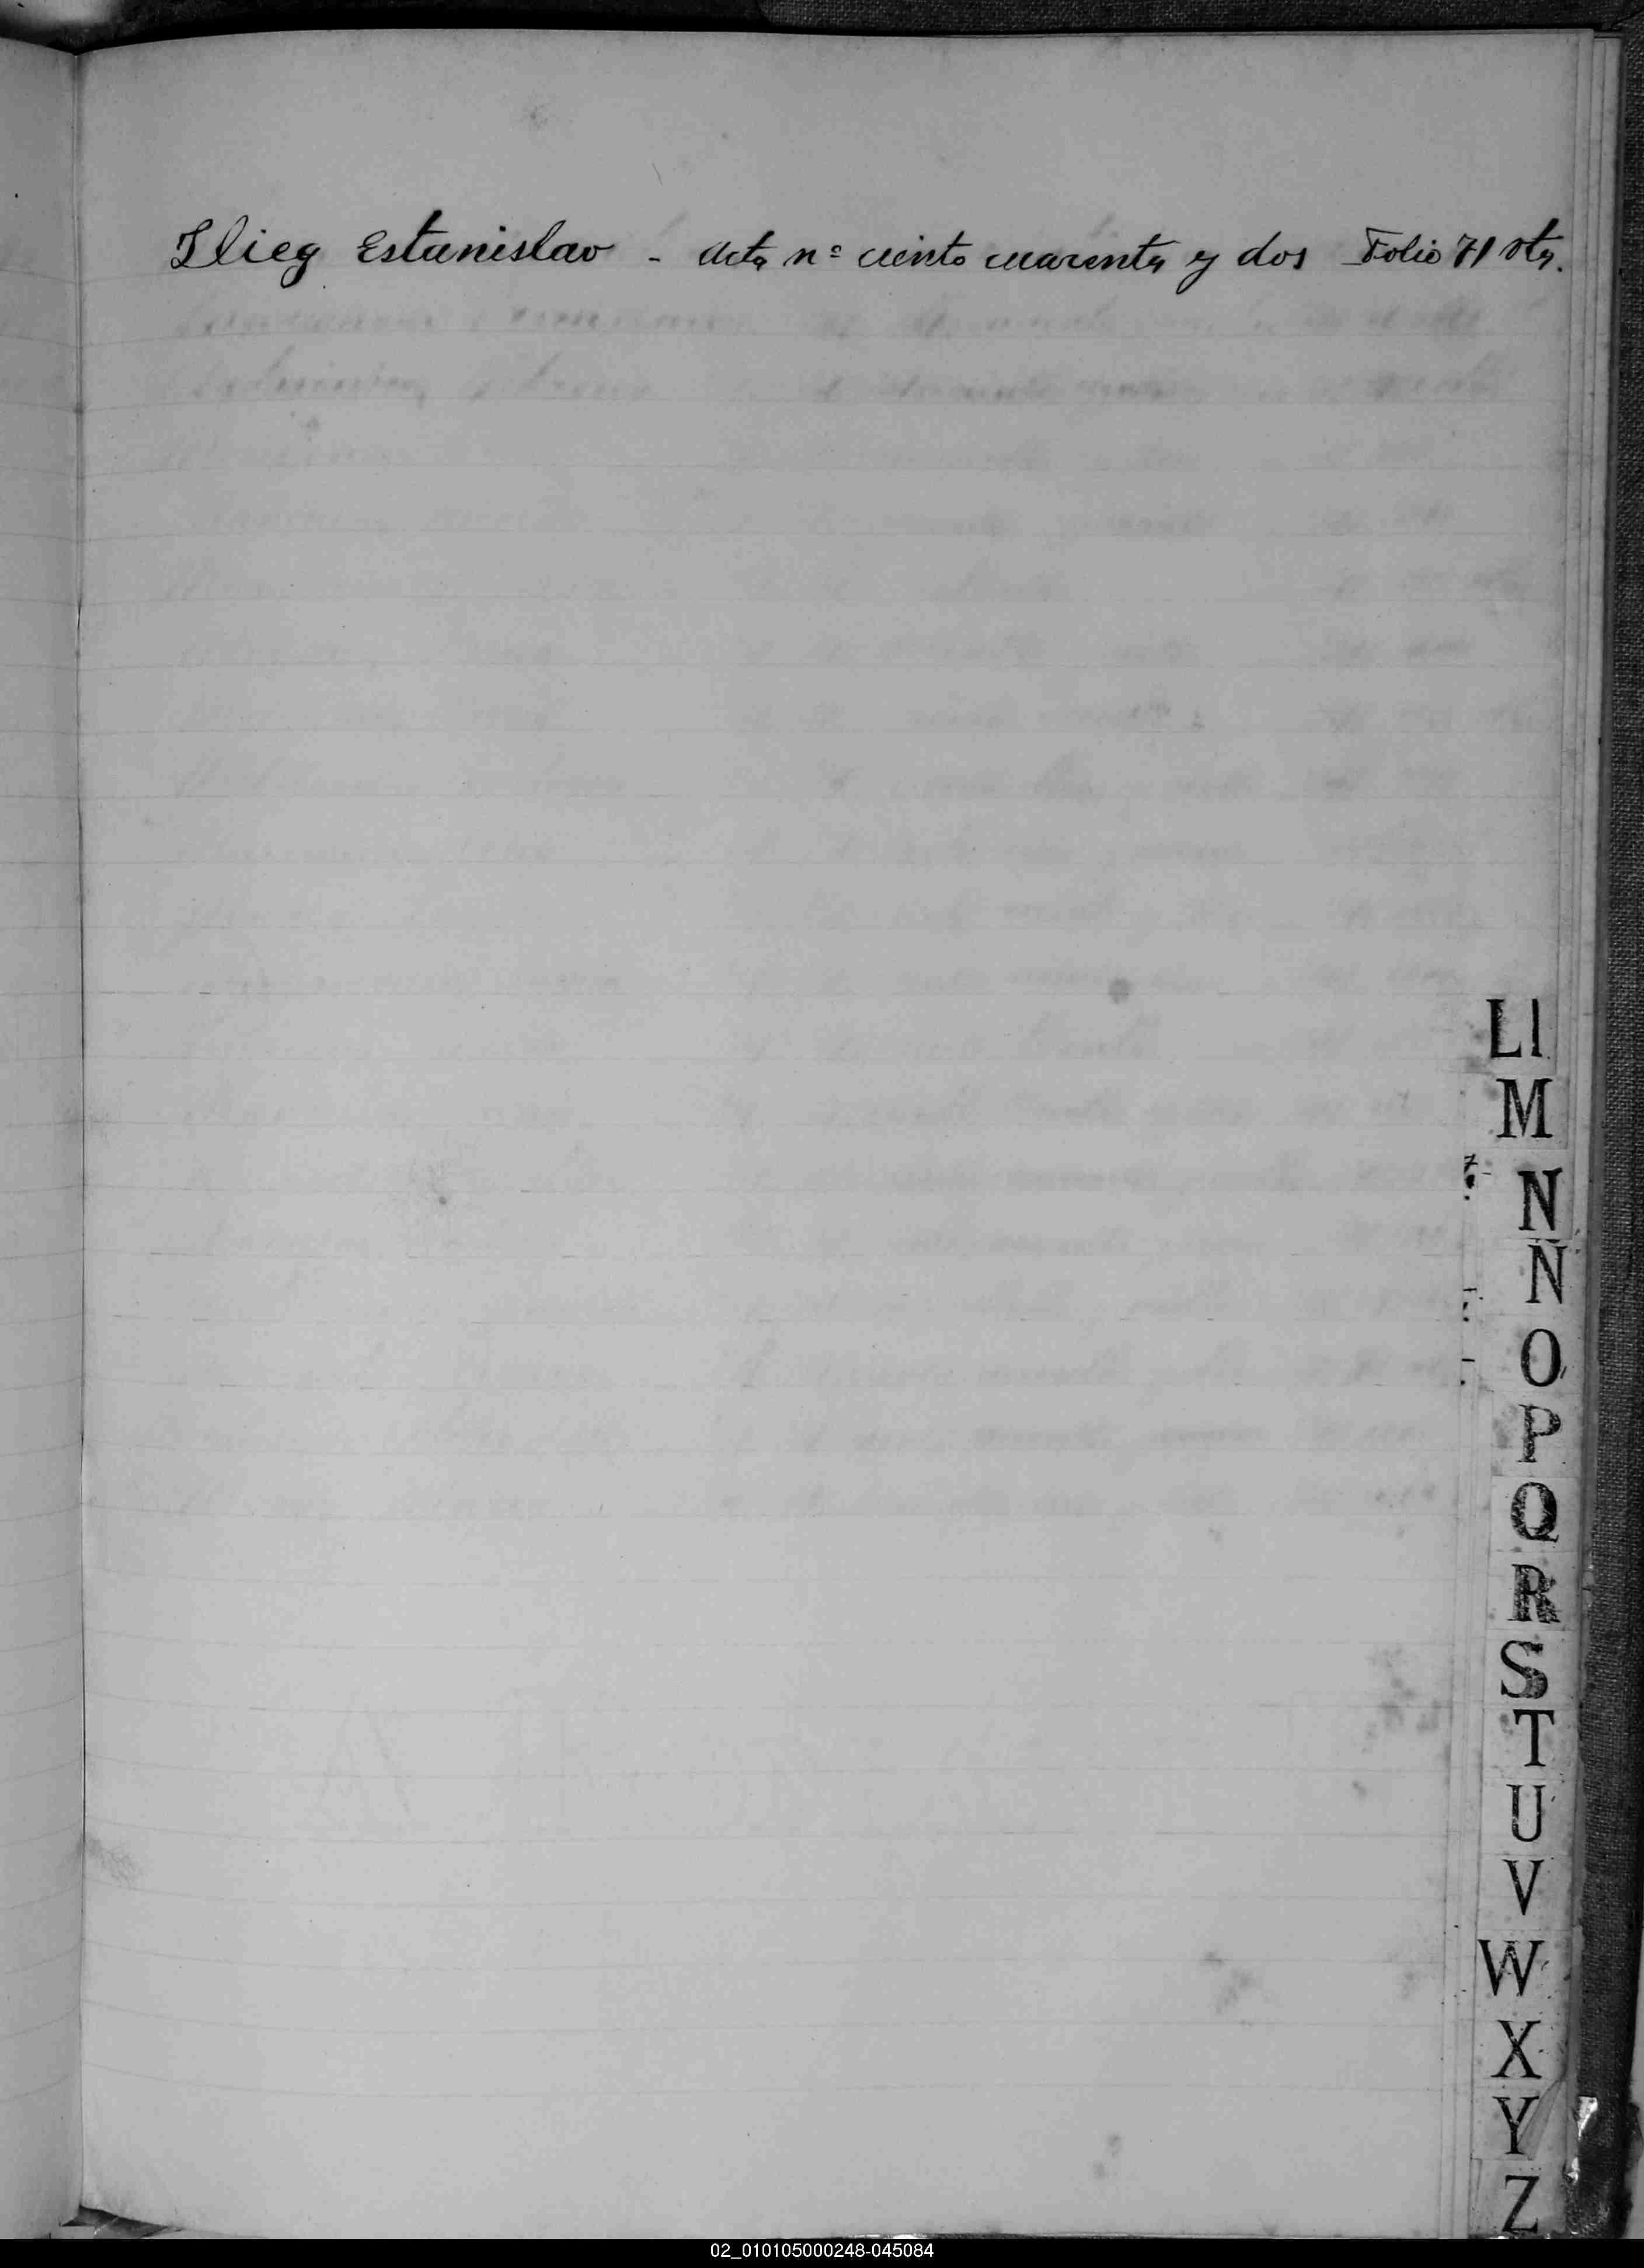 Ilieg Estanislao - Acta nº ciento cuarenta y dos Folio 71 vta.
Ll
M
N
Ñ
O
P
Q
R
S
T
U
V
W
X
Y
Z
02_010105000248-045084